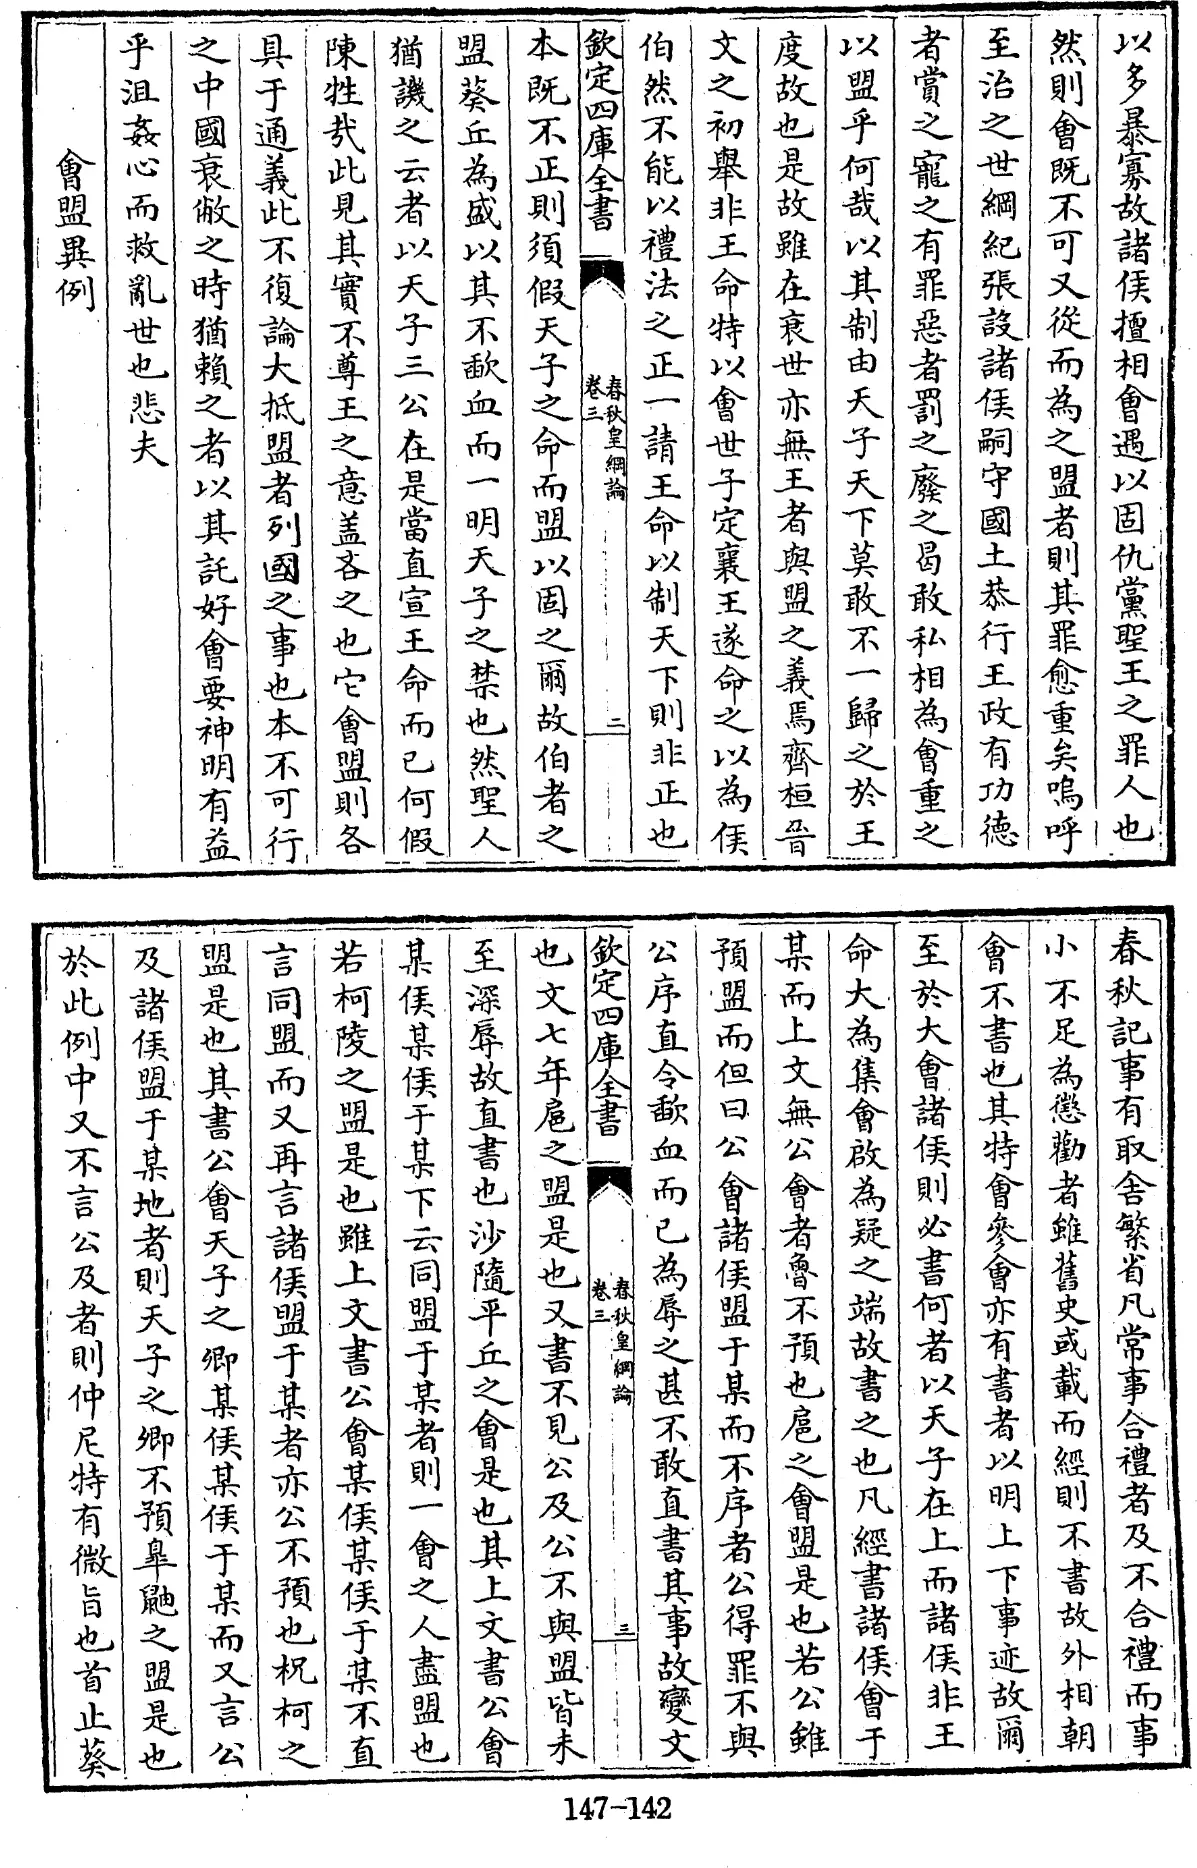 以多暴寡故諸侯擅相會遇以固仇黨聖王之罪人也
然則會既不可又從而為之盟者則其罪愈重矣嗚呼
至治之世綱紀張設諸侯嗣守國土恭行王政有功德
者賞之寵之有罪惡者罰之廢之曷敢私相為會重之
以盟乎何哉以其制由天子天下莫敢不一歸之於王
度故也是故雖在衰世亦無王者與盟之義焉齊桓晉
文之初舉非王命特以會世子定襄王遂命之以為侯
伯然不能以禮法之正一請王命以制天下則非正也
欽定四庫全書
春秋皇綱論
卷三
二
本既不正則須假天子之命而盟以固之爾故伯者之
盟葵丘為盛以其不歃血而一明天子之禁也然聖人
猶譏之云者以天子三公在是當直宣王命而已何假
陳牲哉此見其實不尊王之意盖吝之也它會盟則各
具于通義此不復論大抵盟者列國之事也本不可行
之中國衰敝之時猶賴之者以其託好會要神明有益
乎沮姦心而救亂世也悲夫
會盟異例
春秋記事有取舍繁省凡常事合禮者及不合禮而事
小不足為懲勸者雖舊史或載而經則不書故外相朝
會不書也其特會參會亦有書者以明上下事迹故爾
至於大會諸侯則必書何者以天子在上而諸侯非王
命大為集會啟為疑之端故書之也凡經書諸侯會于
某而上文無公會者魯不預也扈之會盟是也若公雖
預盟而但曰公會諸侯盟于某而不序者公得罪不與
公序直令歃血而已為辱之甚不敢直書其事故變文
欽定四庫全書
春秋皇綱論
卷三
三
也文七年扈之盟是也又書不見公及公不與盟皆未
至深辱故直書也沙隨平丘之會是也其上文書公會
某侯某侯于某下云同盟于某者則一會之人盡盟也
若柯陵之盟是也雖上文書公會某侯某侯于某不直
言同盟而又再言諸侯盟于某者亦公不預也柷柯之
盟是也其書公會天子之卿某侯某侯于某而又言公
及諸侯盟于某地者則天子之卿不預皐鼬之盟是也
於此例中又不言公及者則仲尼特有微旨也首止葵
147-142